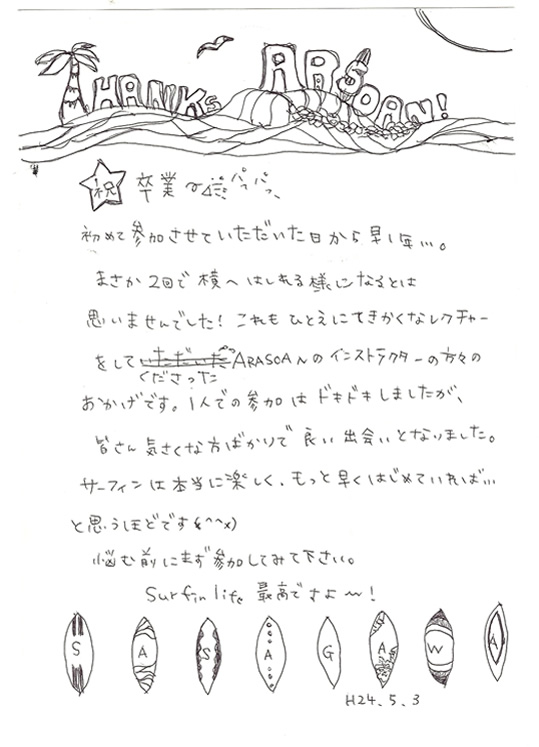 THANKS ARASOAN!
祝 卒業 パフパフ、
初めて参加させていただいた日から早1年…。
まさか2回で横へはしれる様になるとは
思いませんでした! これもひとえにてきかくなレクチャー
をして くださった ARASOANのインストラクターの方々の
おかげです。1人での参加はドキドキしましたが、
皆さん気さくな方ばかりで良い出会いとなりました。
サーフィンは本当に楽しく、もっと早くはじめていれば…
と思うほどです(^^x)
悩む前にまず参加してみて下さい。
Surfin life 最高ですよ〜!
S A S A G A W A
H24.5.3